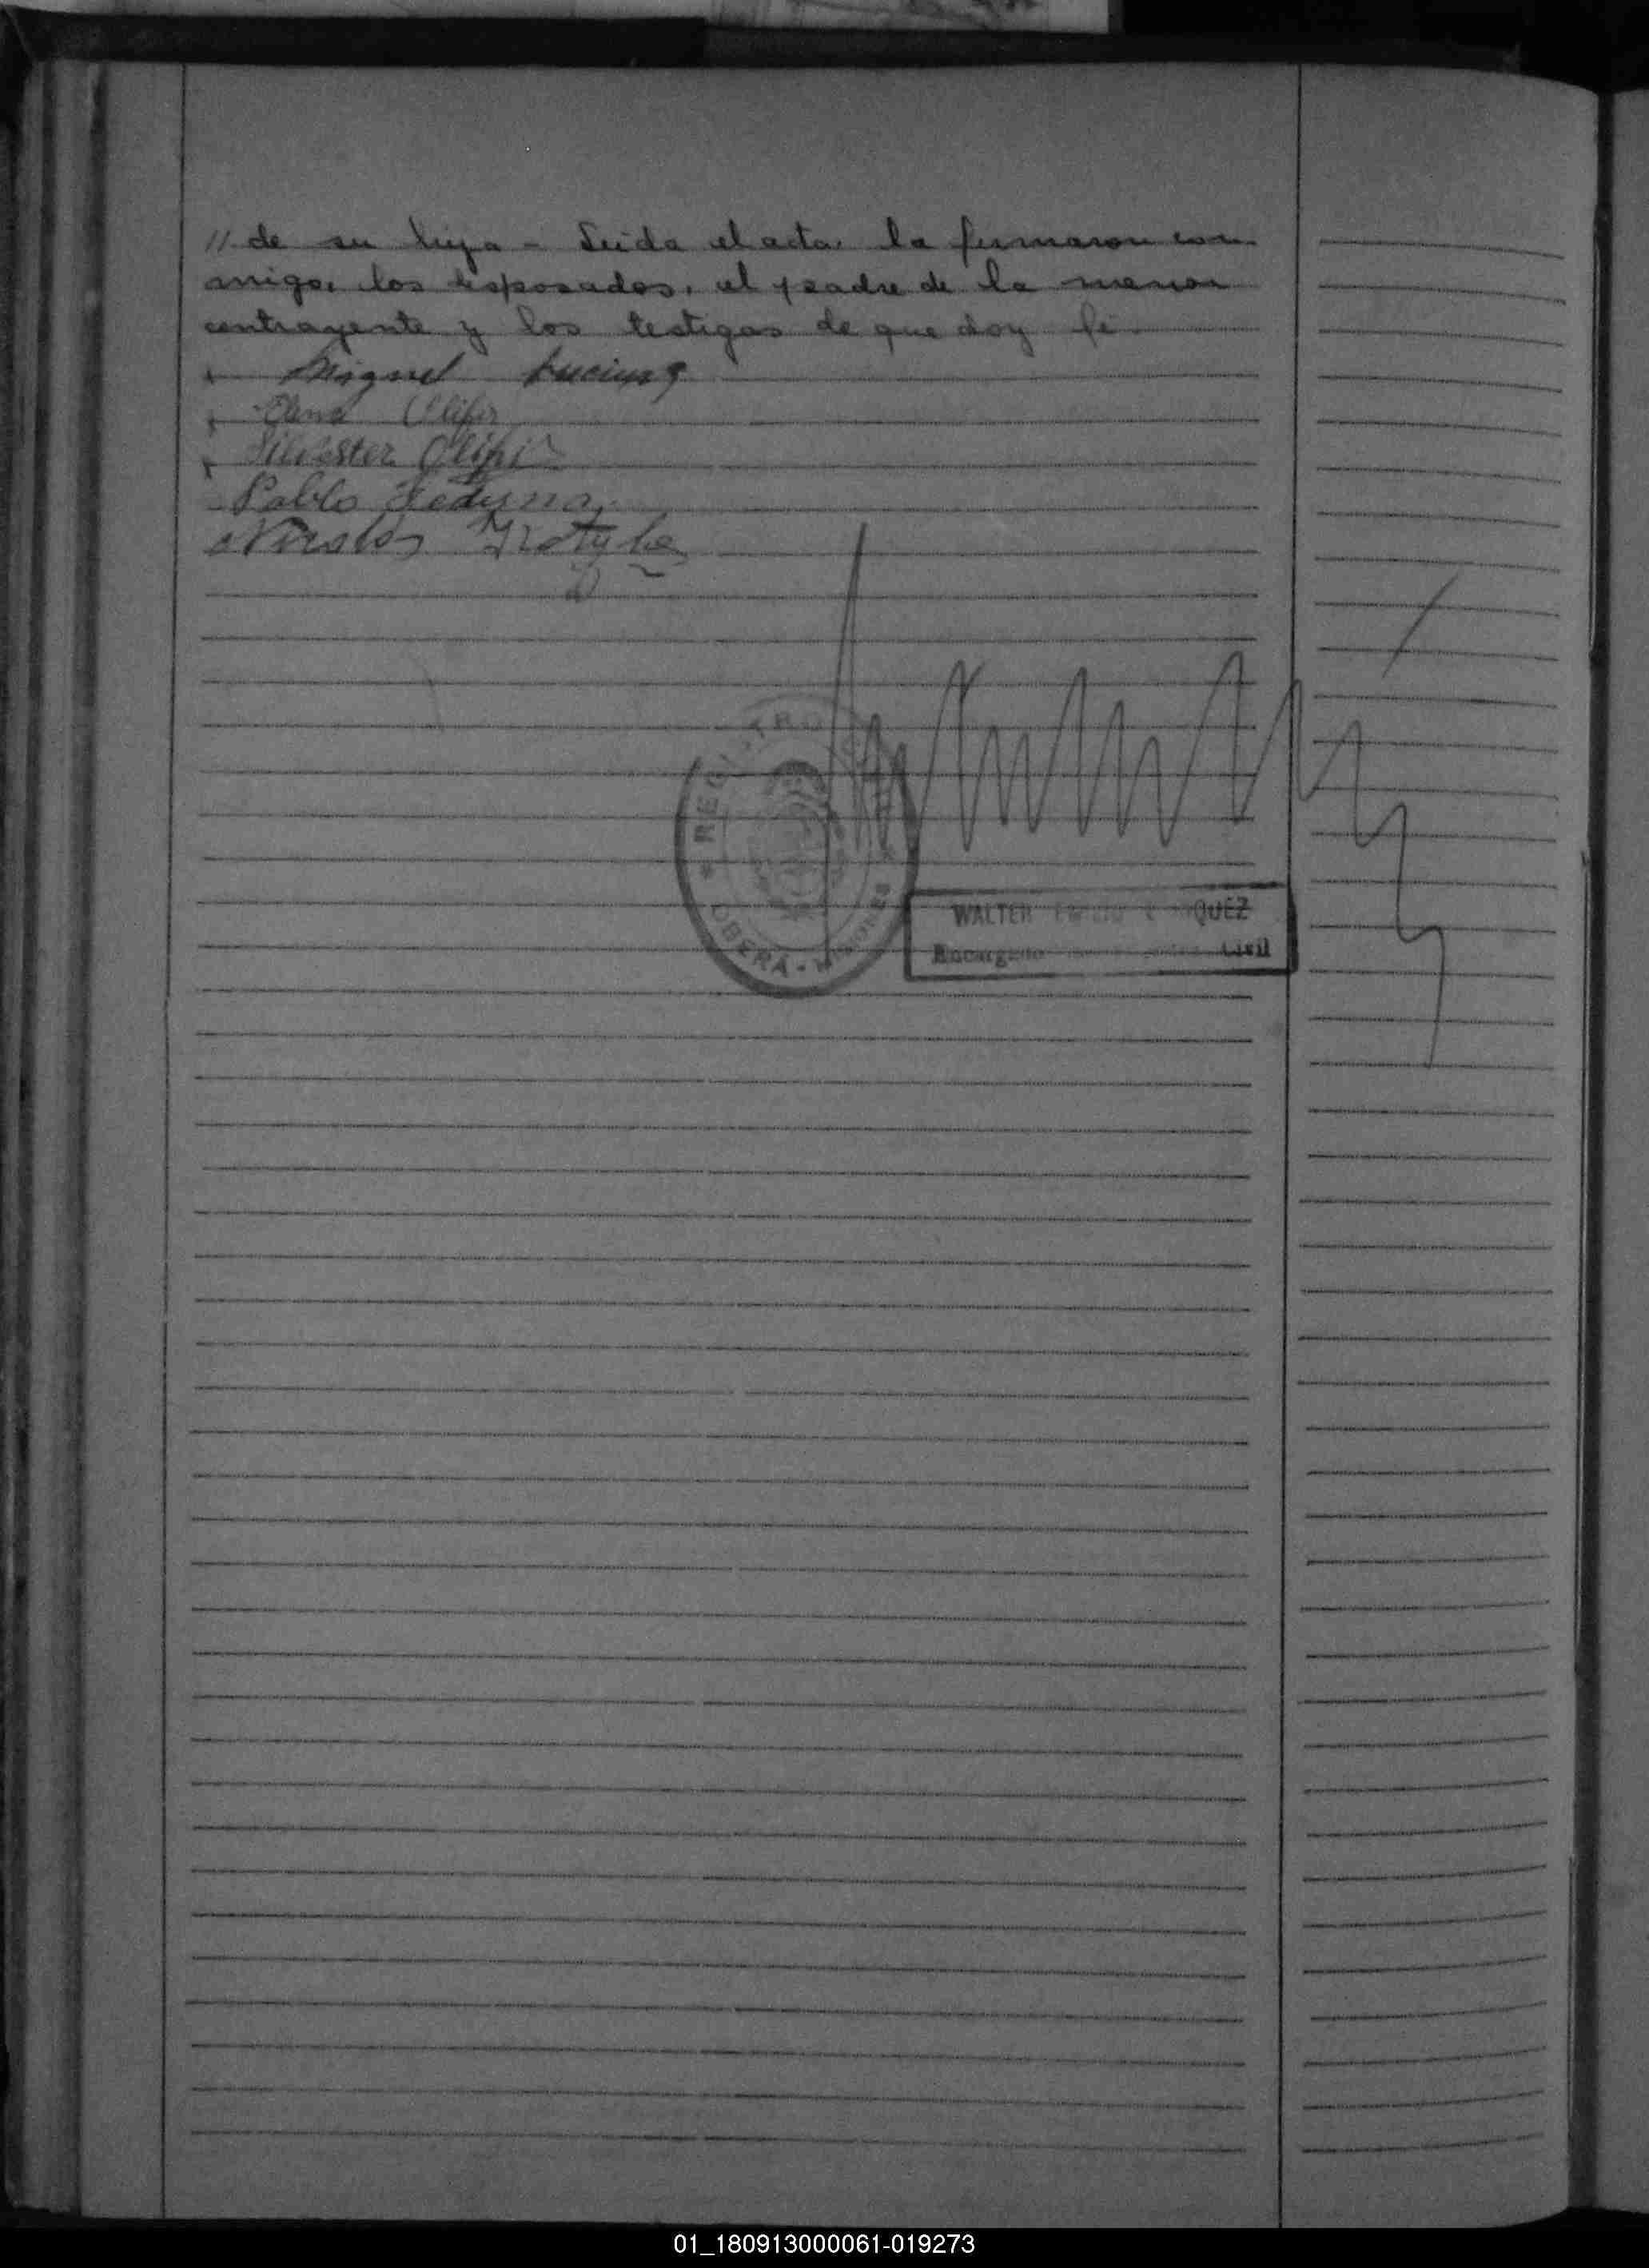 // de su hija - Leida el acta, la firmaron con
migo, los desposados, el padre de la menor
contrayente y los testigos de que doy fé
Miguel
Elena Olipi
Silvester Olipi
Pablo
Nicolás
REGISTRO CIVIL
OBERÁ - MISIONES
WALTER QUEZ
Encargado Civil
01_180913000061-019273